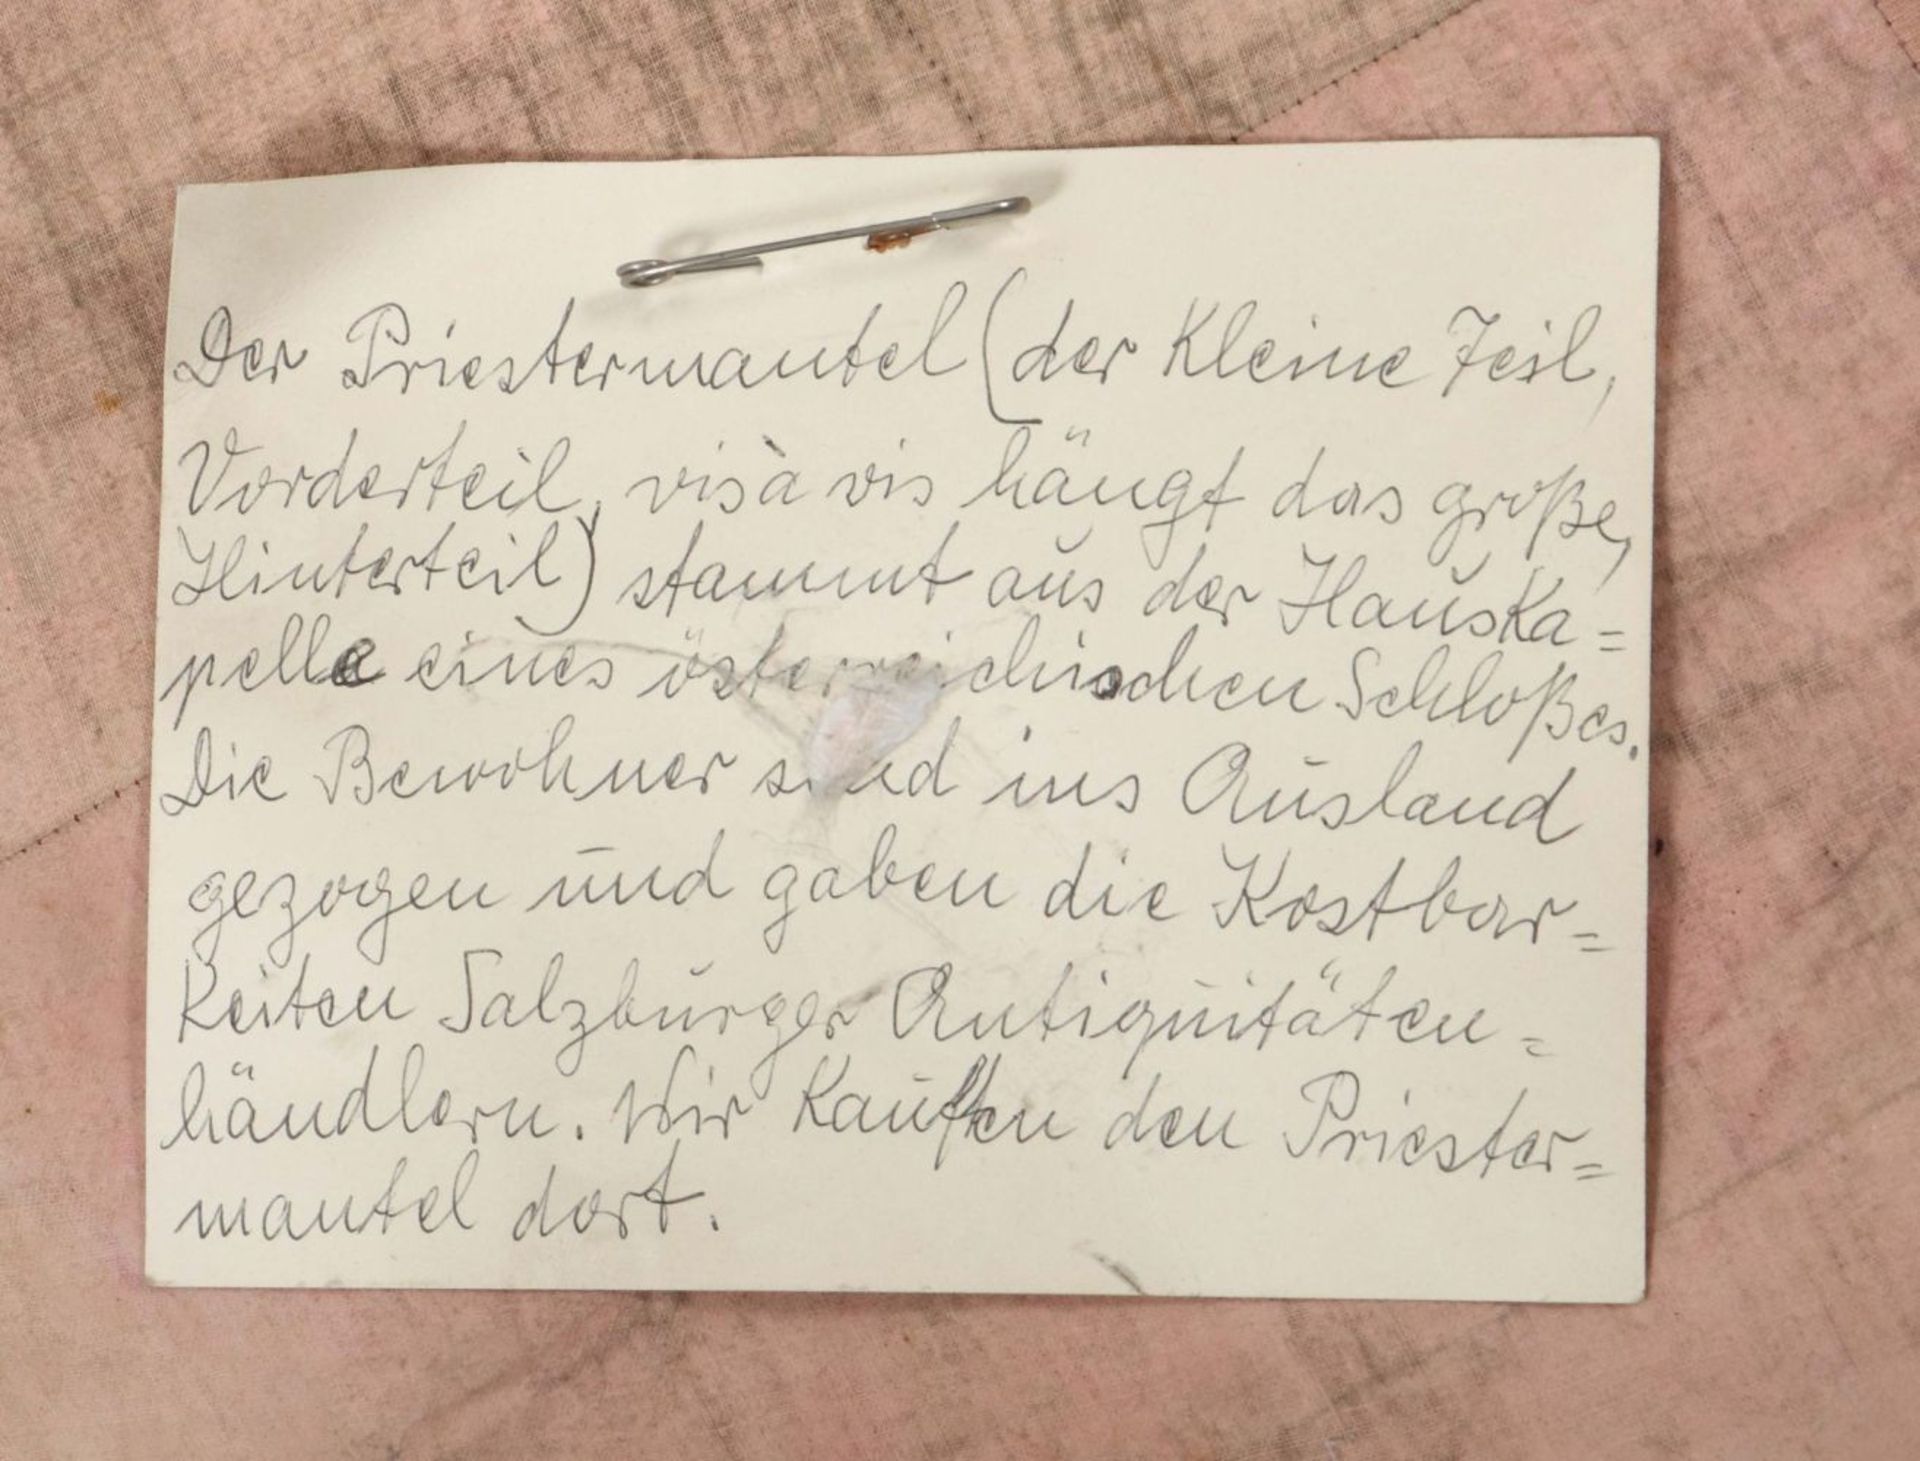 Der Priestermantel (der Kleine Teil,
Vorderteil, vis à vis hängt das große,
Hinterteil) stammt aus der Hauska=
pelle eines österreichischen Schloßes.
Die Bewohner sind ins Ausland
gezogen und gaben die Kostbar=
keiten Salzburger Antiquitäten=
händlern. Wir kauften den Priester=
mantel dort.